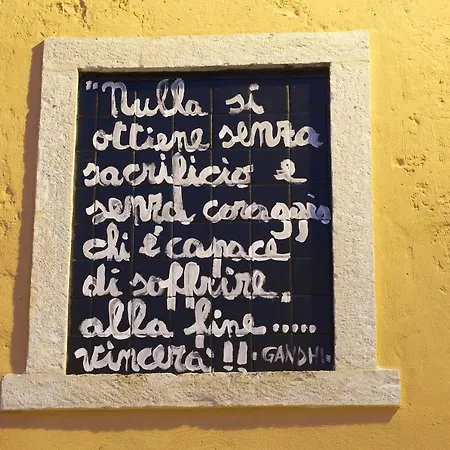 "Nulla si
ottiene senza
sacrificio e
senza coraggio,
chi é capace
di soffrire,
alla fine .....
vincerà !! · GANDHI ·